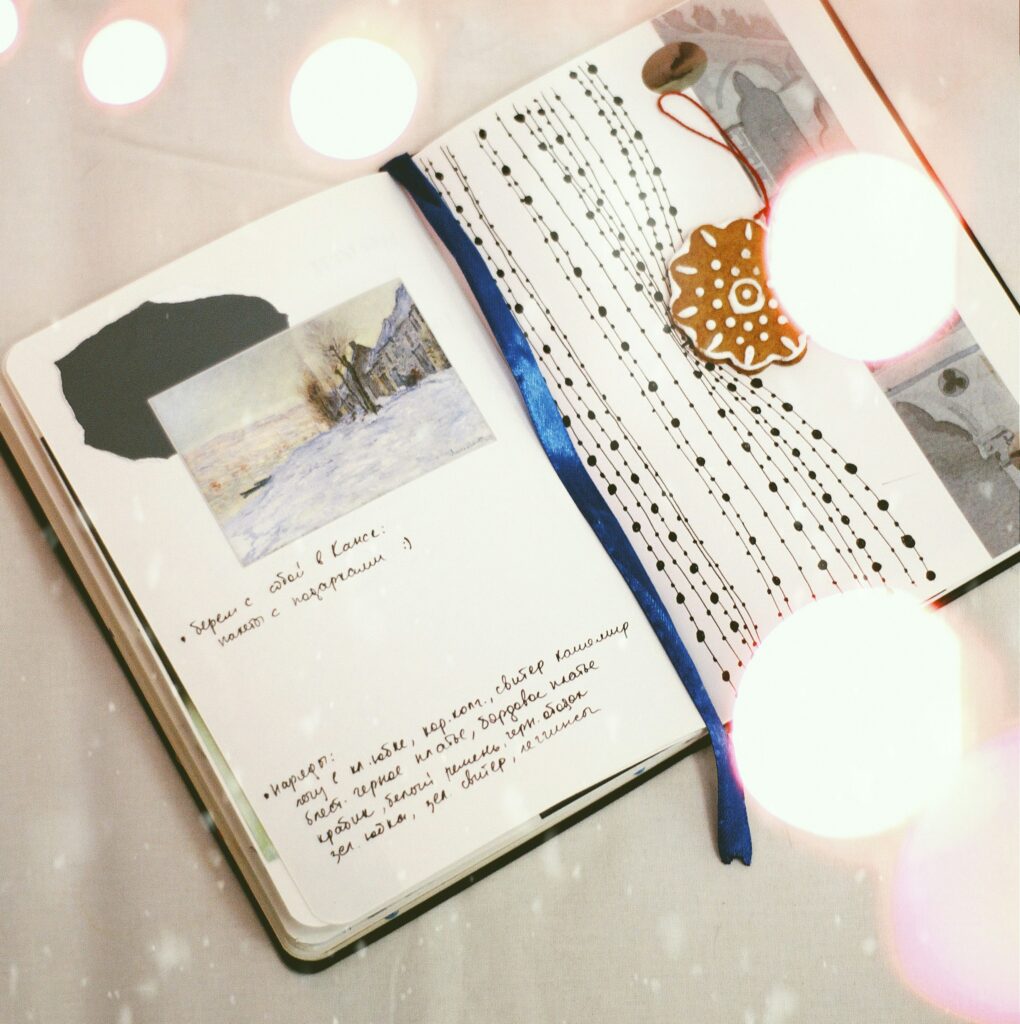 • берем с собой в Канск:
пакеты с подарками :)
• Наряды:
к кл. юбке, кор. колг., свитер кашемир
блест. черное платье, бордовое платье
крабик, белый ремень, черн. ободок
зел. юбка, зел. свитер, леггинсы